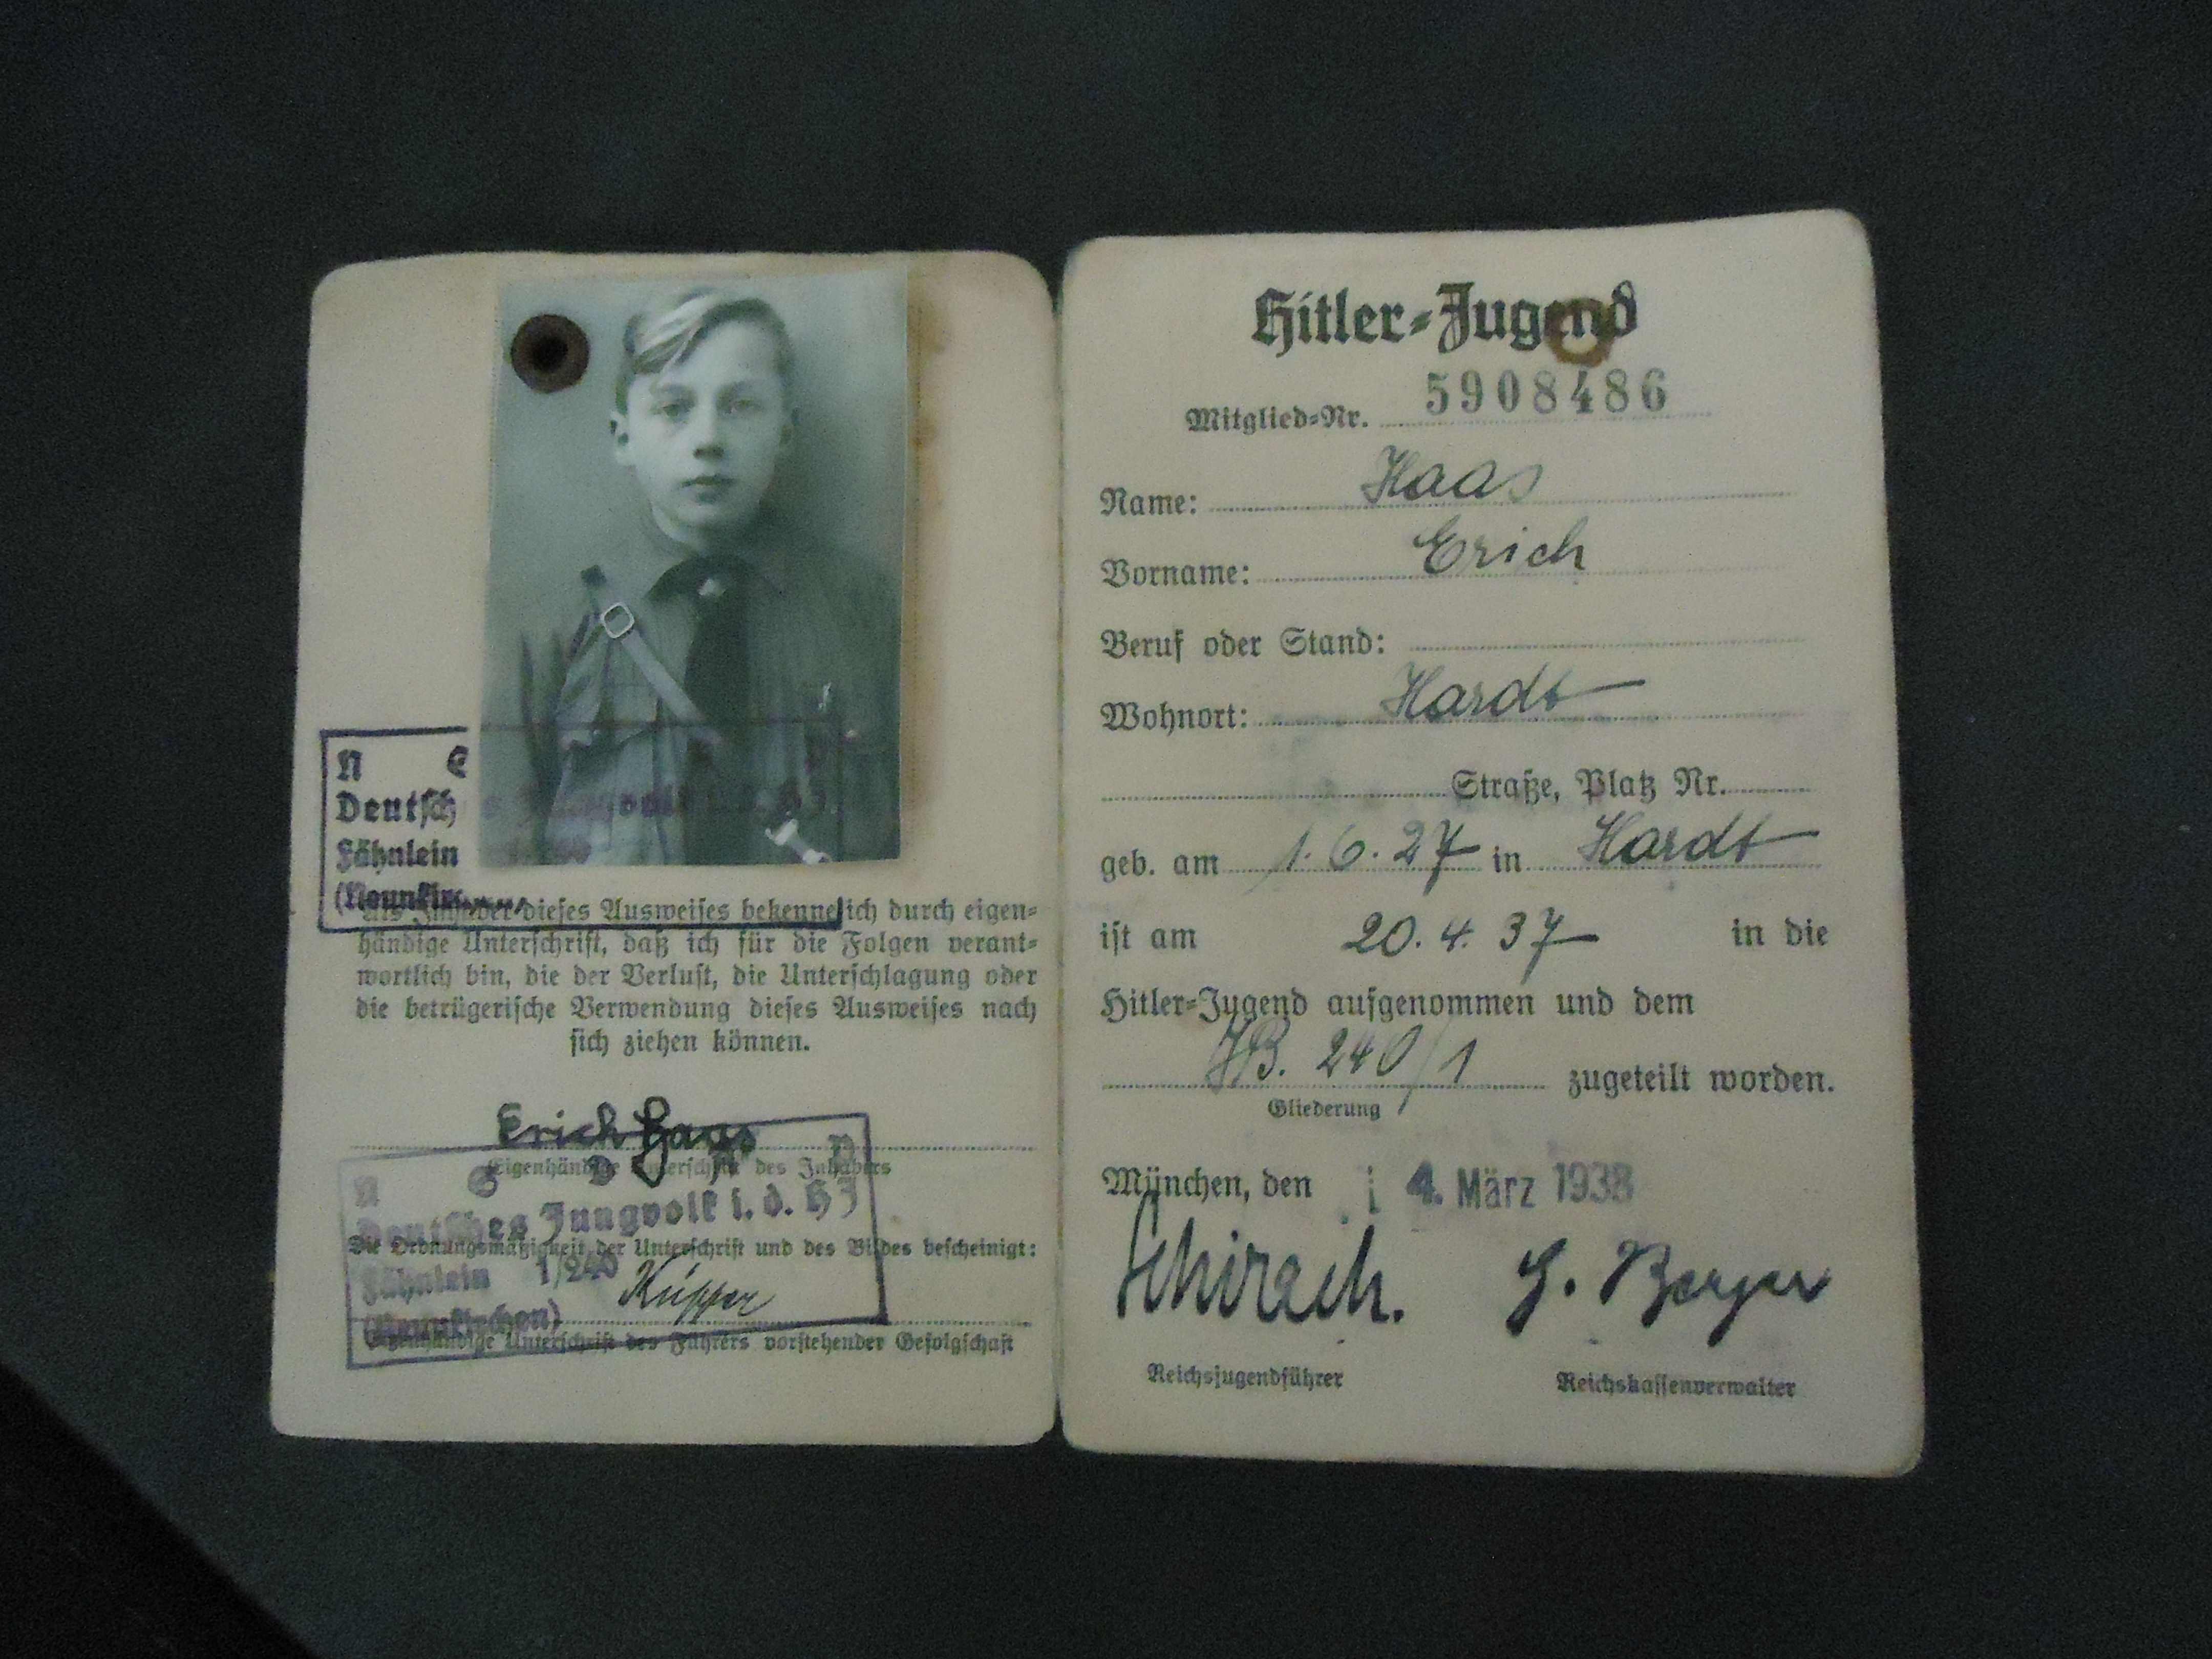 N S
Deutsches Jungvolk i. d. HJ.
Fähnlein
(Neunkirchen)
Als Inhaber dieses Ausweises bekenne ich durch eigen-
händige Unterschrift, daß ich für die Folgen verant-
wortlich bin, die der Verlust, die Unterschlagung oder
die betrügerische Verwendung dieses Ausweises nach
sich ziehen können.
Erich Haas
Eigenhändige Unterschrift des Inhabers
N S D A P
Deutsches Jungvolk i. d. HJ
Die Ordnungsmäßigkeit der Unterschrift und des Bildes bescheinigt:
Fähnlein 1/240
Küpper
(Neunkirchen)
Eigenhändige Unterschrift des Führers vorstehender Gefolgschaft
Hitler-Jugend
Mitglied-Nr. 5908486
Name: Haas
Vorname: Erich
Beruf oder Stand:
Wohnort: Hardt
Straße, Platz Nr.
geb. am 1. 6. 27 in Hardt
ist am 20. 4. 37 in die
Hitler-Jugend aufgenommen und dem
JB. 240/1 zugeteilt worden.
Gliederung
München, den 4. März 1938
Schirach. G. Berger
Reichsjugendführer Reichskassenverwalter